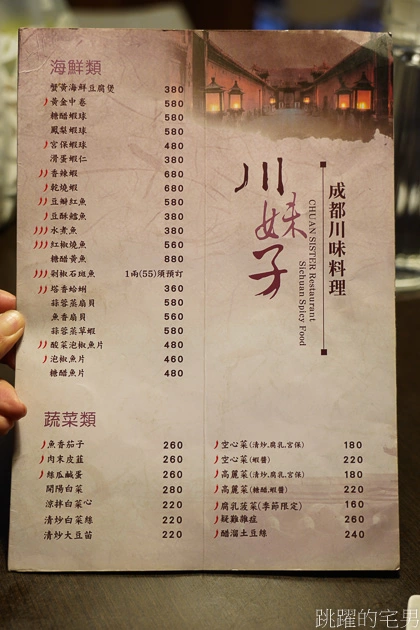 海鮮類
蟹黃海鮮豆腐煲 380
黃金中卷 580
糖醋蝦球 580
鳳梨蝦球 580
宮保蝦球 480
滑蛋蝦仁 380
香辣蝦 680
乾燒蝦 680
豆瓣紅魚 580
豆酥鱈魚 380
水煮魚 380
紅椒燒魚 560
糖醋黃魚 880
剁椒石斑魚 1兩(55)須預訂
塔香蛤蜊 360
蒜蓉蒸扇貝 580
魚香扇貝 580
蒜蓉蒸草蝦 580
酸菜泡椒魚片 480
泡椒魚片 460
糖醋魚片 480
川妹子
成都川味料理
CHUAN SISTER Restaurant
Sichuan Spicy Food
蔬菜類
魚香茄子 260
肉末皮蛋 260
絲瓜鹹蛋 260
開陽白菜 280
涼拌白菜心 220
清炒白菜絲 220
清炒大豆苗 220
空心菜(清炒.腐乳.宮保) 180
空心菜(蝦醬) 220
高麗菜(清炒.腐乳.宮保) 180
高麗菜(糖醋.蝦醬) 220
腐乳菠菜(季節限定) 160
疑難雜症 260
醋溜土豆絲 240
跳躍的宅男